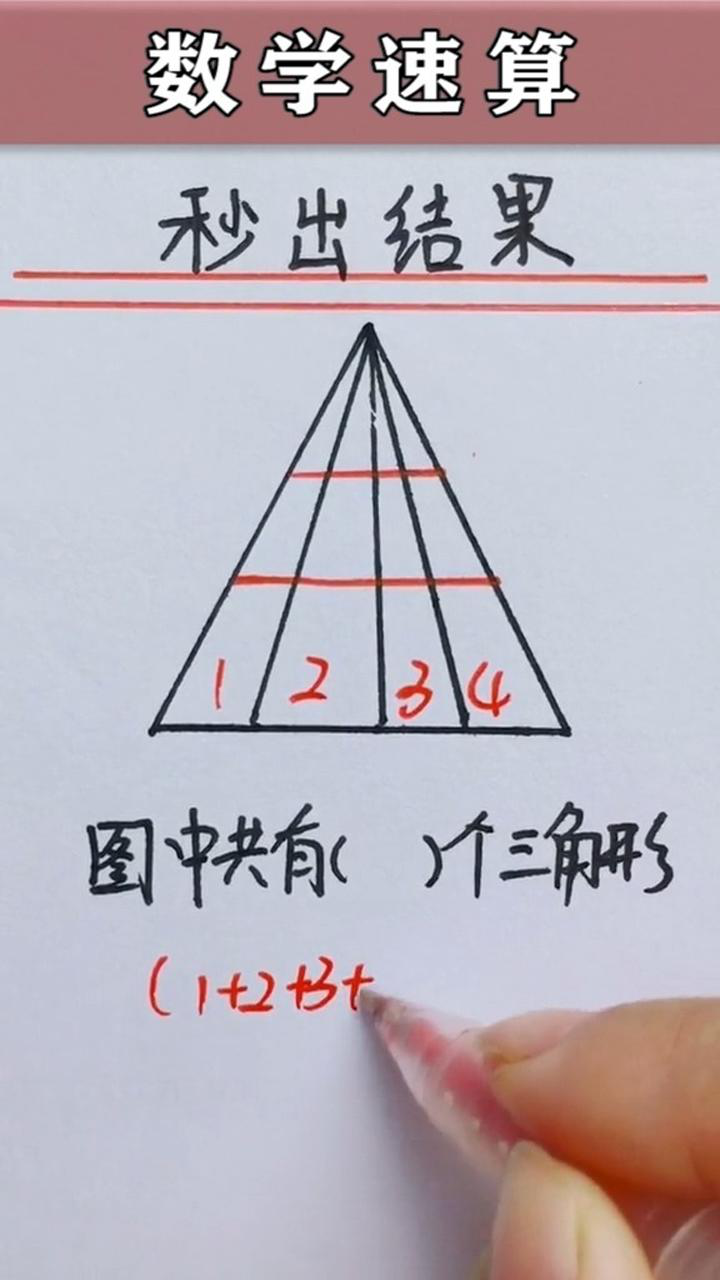 数学速算
秒出结果
1 2 3 4
图中共有( )个三角形
(1+2+3+